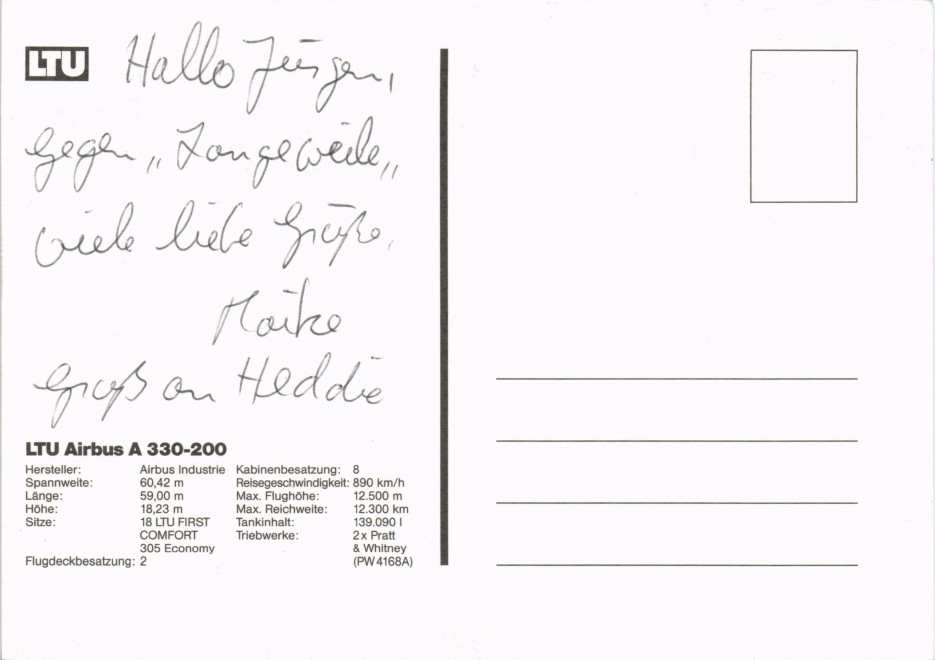 LTU
Hallo Jürgen,
gegen „Langeweile„
viele liebe Grüße,
Maike
Gruß an Heddie
LTU Airbus A 330-200
Hersteller: Airbus Industrie Kabinenbesatzung: 8
Spannweite: 60,42 m Reisegeschwindigkeit: 890 km/h
Länge: 59,00 m Max. Flughöhe: 12.500 m
Höhe: 18,23 m Max. Reichweite: 12.300 km
Sitze: 18 LTU FIRST Tankinhalt: 139.090 l
COMFORT Triebwerke: 2 x Pratt
305 Economy & Whitney
Flugdeckbesatzung: 2 (PW 4168A)